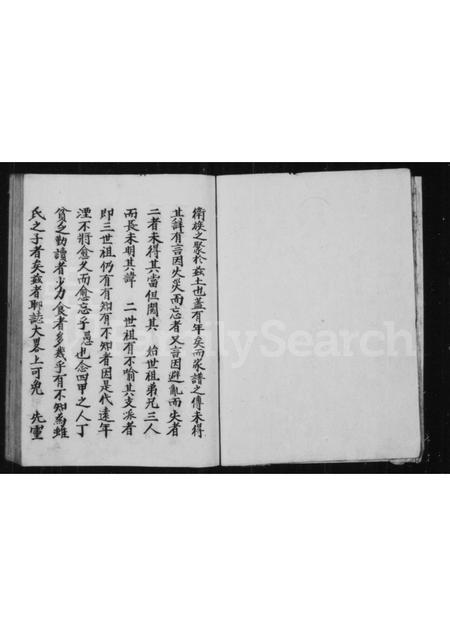 衛族之聚於茲土也蓋有年矣而家譜之傳未得
其詳有言因火災而忘者又言因避亂而失者
二者未得其當但聞其 始世祖弟兄三人
而長未明其諱 二世祖有不喻其支派者
即三世祖仍有有知有不知者因是代遠年
湮不將愈久而愈忘乎愚也念四甲之人丁
貧乏勤讀者少力食者多幾乎有不知為誰
氏之子者矣茲者聊誌大畧上可免 先靈
FamilySearch